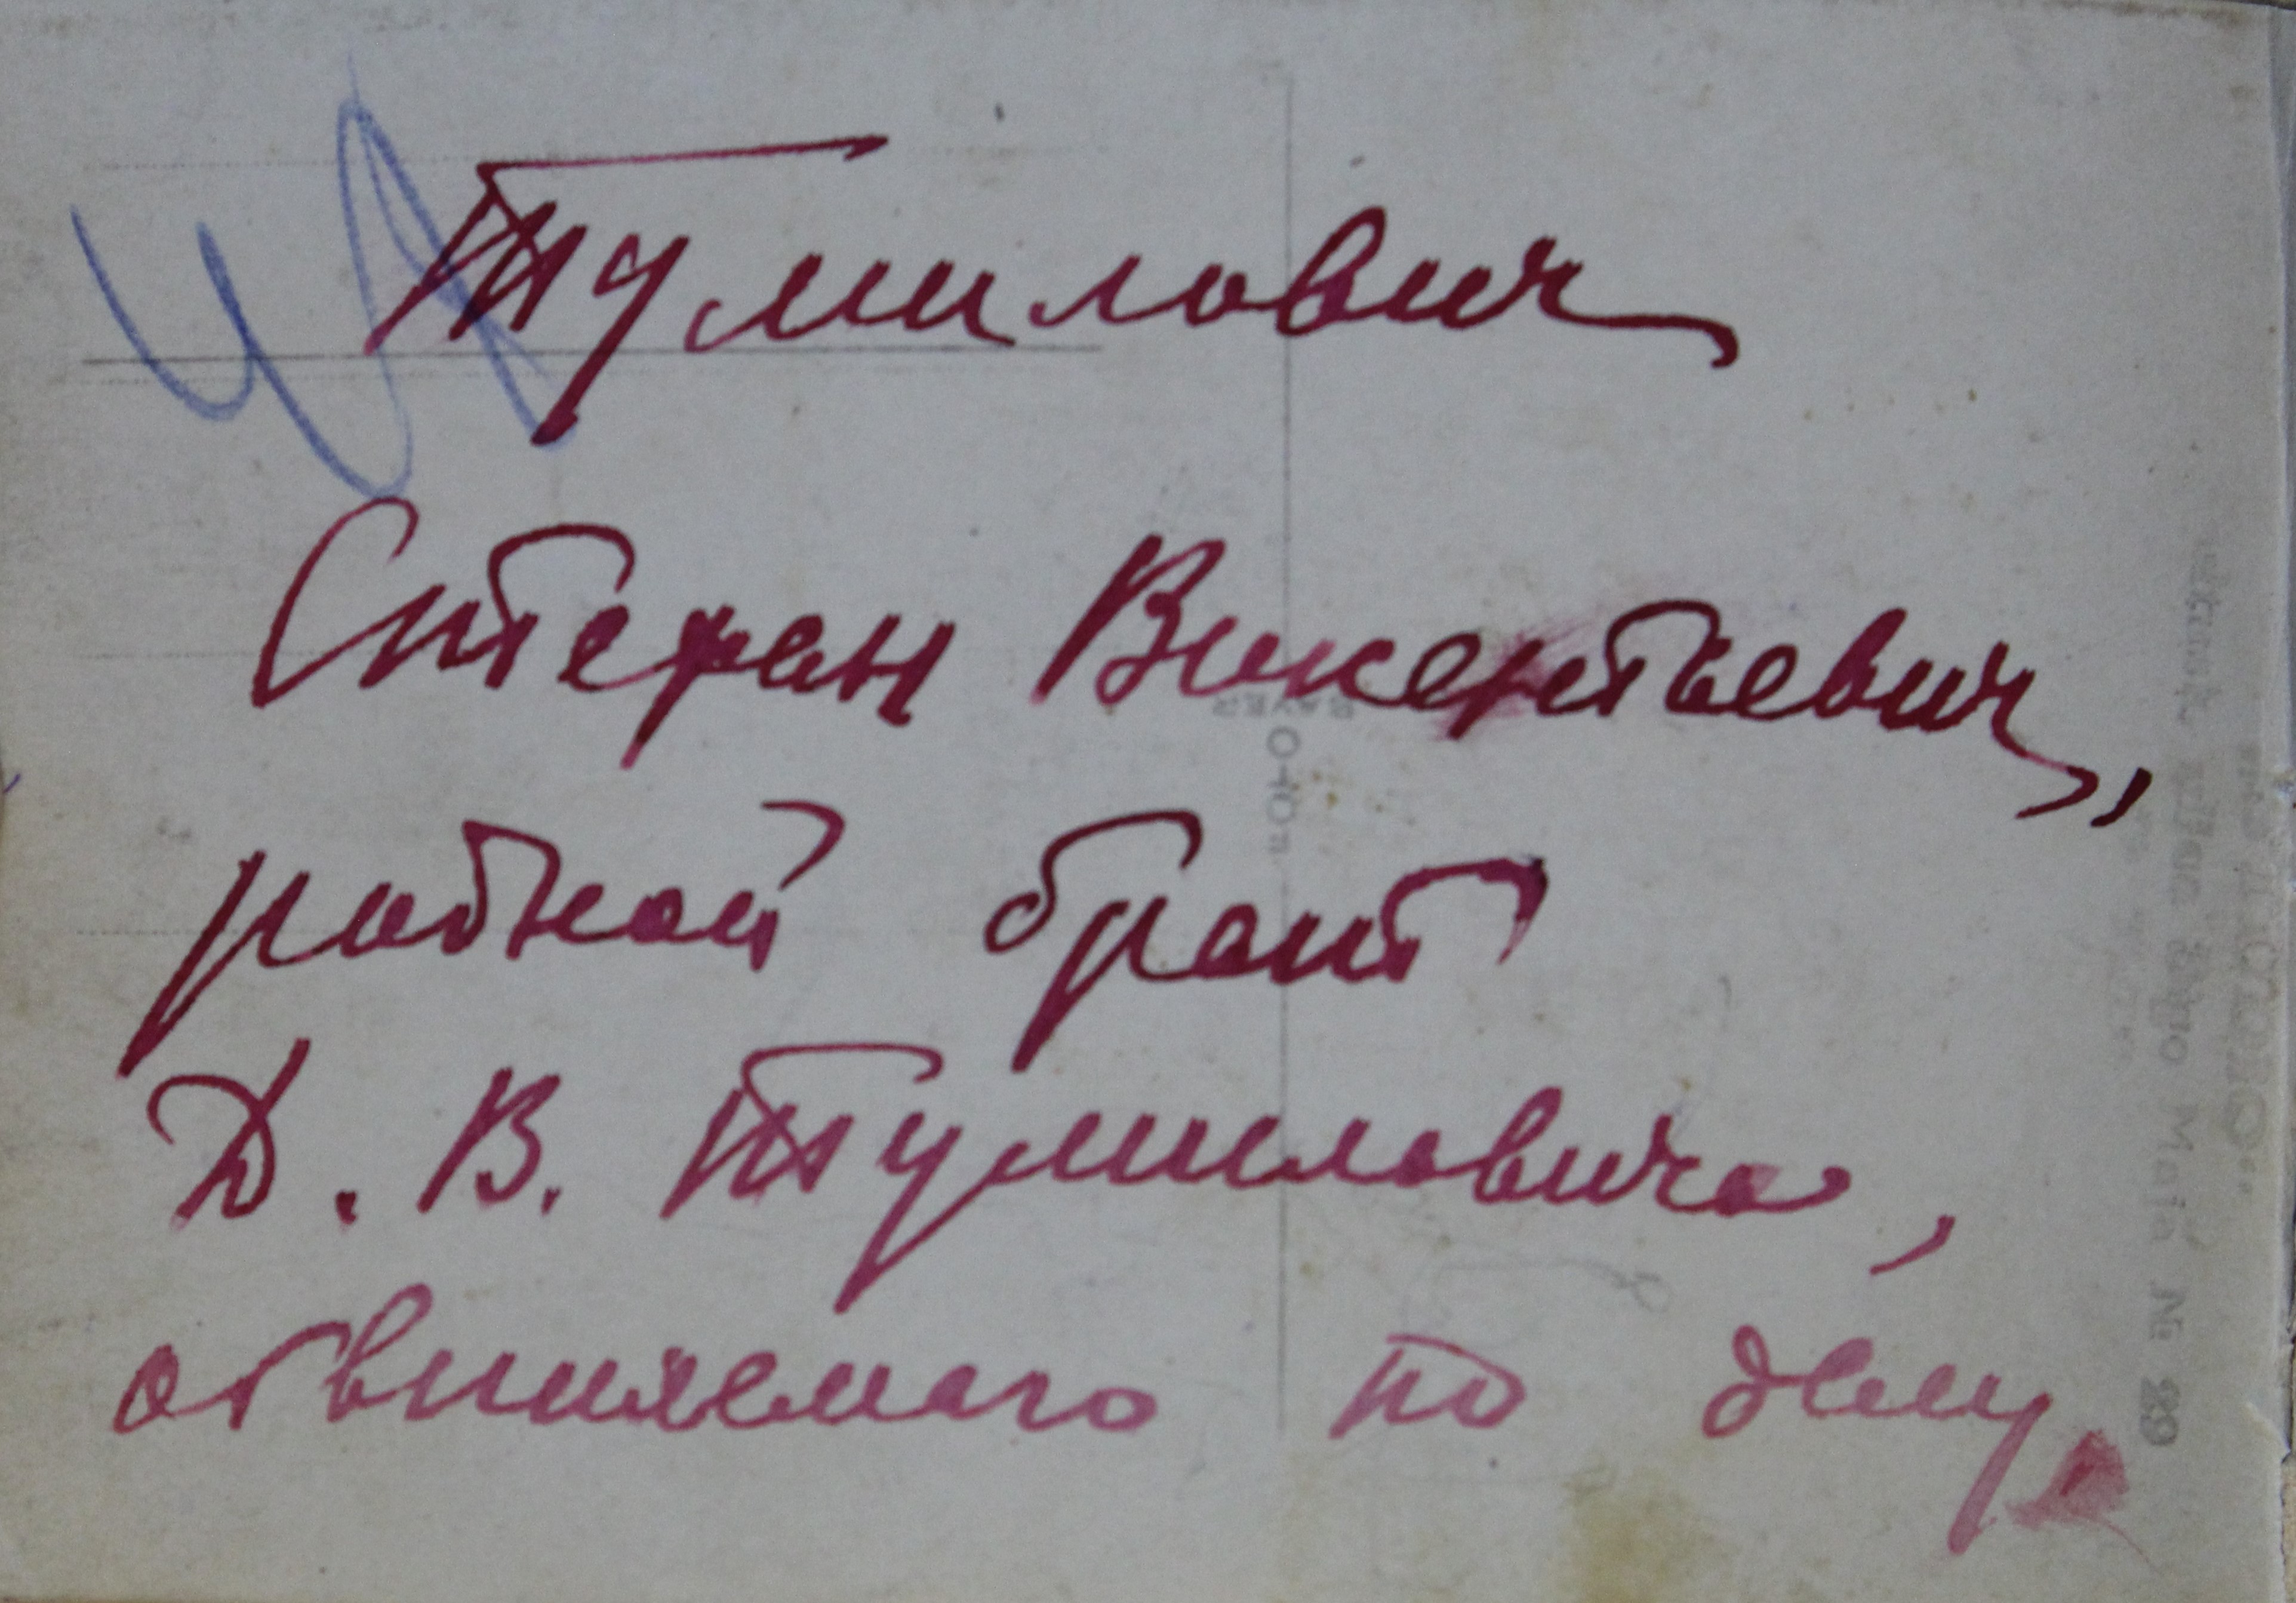 Тумилович
Стефан Викентьевич,
родной брат
Д. В. Тумиловича,
обвиняемого по делу